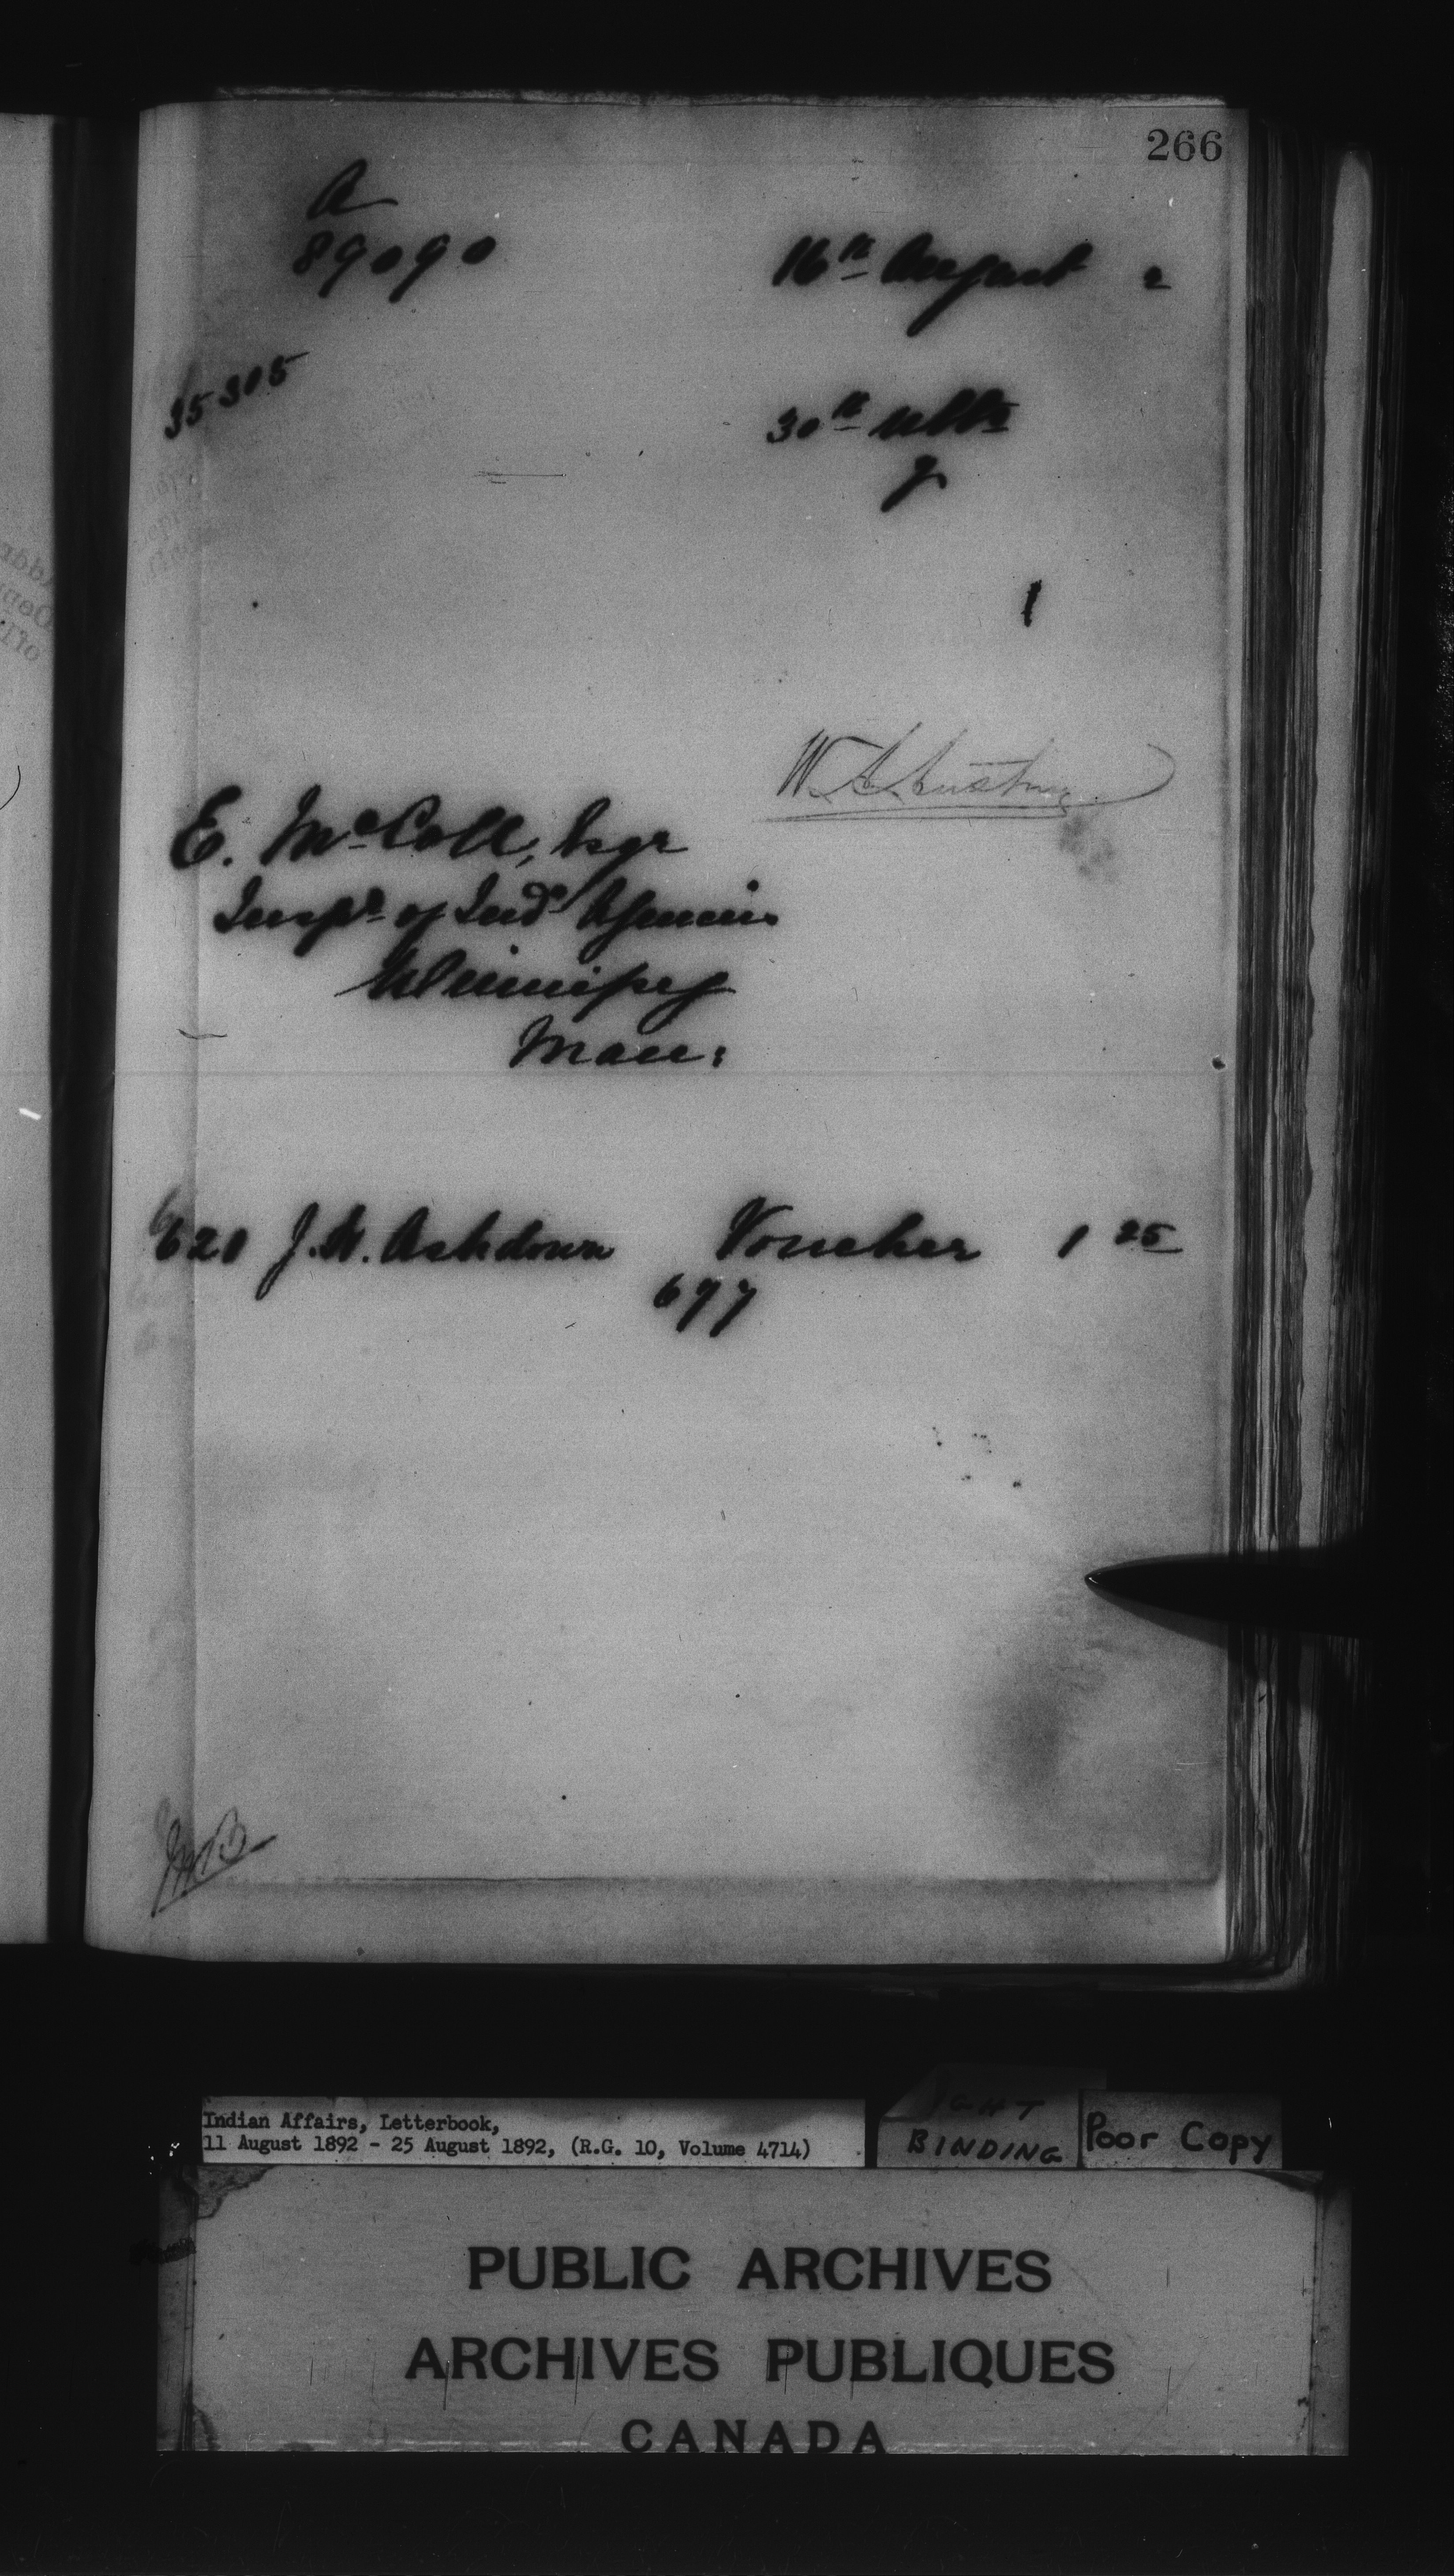 266
A
89090
16th August 2
35305
30th ulto
y
1
W. A. Austin
E. McColl, Esqr
Inspr of Indn Agencies
Winnipeg
Man:
620 J. H. Ashdown Voucher 1 25
677
Indian Affairs, Letterbook,
11 August 1892 - 25 August 1892, (R.G. 10, Volume 4714)
BINDING
Poor Copy
PUBLIC ARCHIVES
ARCHIVES PUBLIQUES
CANADA